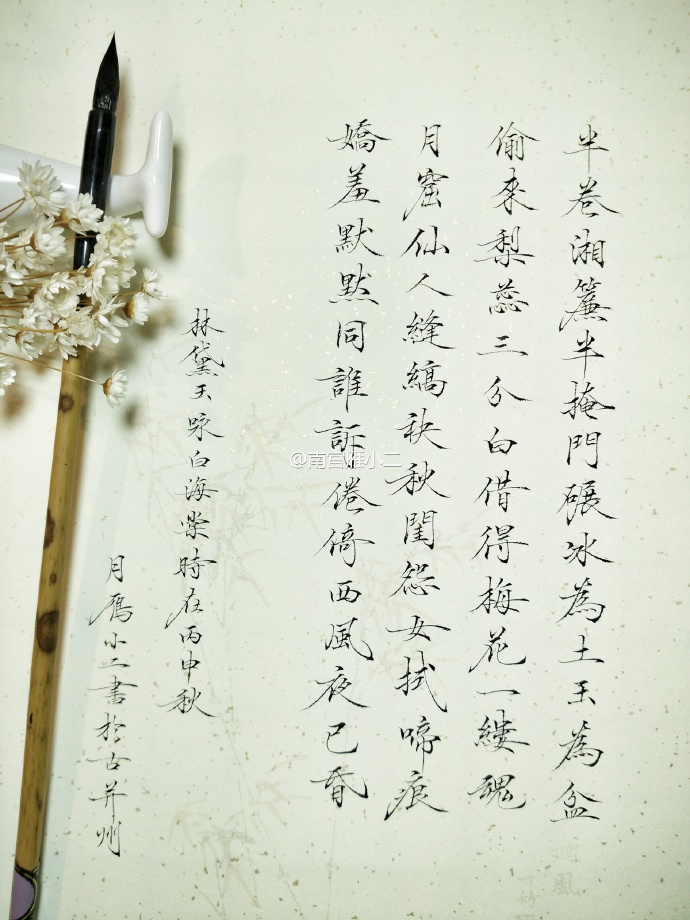 半卷湘簾半掩門碾冰為土玉為盆
偷來梨蕊三分白借得梅花一縷魂
月窟仙人縫縞袂秋閨怨女拭啼痕
嬌羞默默同誰訴倦倚西風夜已昏
林黛玉咏白海棠時在丙申秋
月雁小二書於古并州
@南宫雁小二